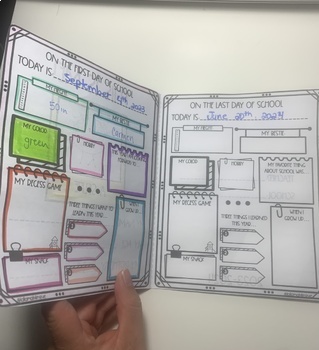 ON THE FIRST DAY OF SCHOOL
TODAY IS September 4th 2023
MY HEIGHT
MY BESTIE
MY COLOR
green
HOBBY
MY RECESS GAME
THREE THINGS I WANT TO
LEARN THIS YEAR
WHEN I
GROW UP
MY SNACK
ON THE LAST DAY OF SCHOOL
TODAY IS June 20th 2024
MY HEIGHT
MY BESTIE
MY COLOR
HOBBY
MY FAVORITE THING
ABOUT SCHOOL WAS
MY RECESS GAME
THREE THINGS I LEARNED
THIS YEAR
WHEN I
GROW UP
MY SNACK